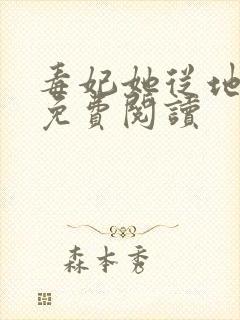 毒妃她从地
免費閱讀
森本秀